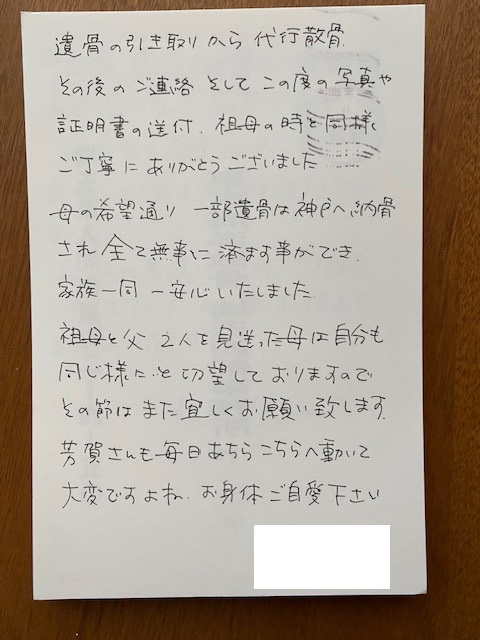 遺骨の引き取りから代行散骨
その後のご連絡そしてこの度の写真や
証明書の送付、祖母の時と同様
ご丁寧にありがとうございました
母の希望通り 一部遺骨は神戸へ納骨
され全て無事に済ます事ができ、
家族一同 一安心いたしました
祖母と父 2人を見送った母は自分も
同じ様に…と切望しておりますので
その節はまた宜しくお願い致します。
芳賀さんも毎日あちらこちらへ動いて
大変ですよね。お身体ご自愛下さい